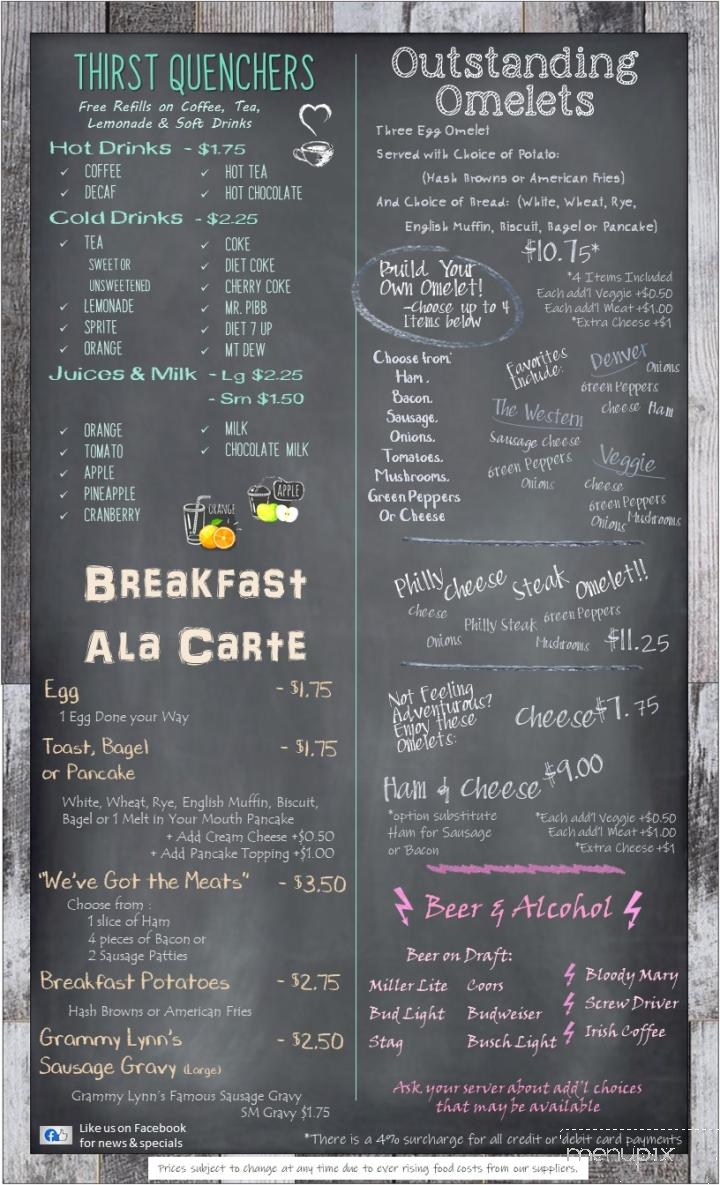 THIRST QUENCHERS
Free Refills on Coffee, Tea,
Lemonade & Soft Drinks
Hot Drinks - $1.75
COFFEE
DECAF
HOT TEA
HOT CHOCOLATE
Cold Drinks - $2.25
TEA
SWEET OR
UNSWEETENED
LEMONADE
SPRITE
ORANGE
COKE
DIET COKE
CHERRY COKE
MR. PIBB
DIET 7 UP
MT DEW
Juices & Milk - Lg $2.25
- Sm $1.50
ORANGE
TOMATO
APPLE
PINEAPPLE
CRANBERRY
MILK
CHOCOLATE MILK
ORANGE
APPLE
BREAKFAST
ALA CARTE
Egg - $1.75
1 Egg Done your Way
Toast, Bagel - $1.75
or Pancake
White, Wheat, Rye, English Muffin, Biscuit,
Bagel or 1 Melt in Your Mouth Pancake
+ Add Cream Cheese +$0.50
+ Add Pancake Topping +$1.00
"We've Got the Meats" - $3.50
Choose from :
1 slice of Ham
4 pieces of Bacon or
2 Sausage Patties
Breakfast Potatoes - $2.75
Hash Browns or American Fries
Grammy Lynn's - $2.50
Sausage Gravy (Large)
Grammy Lynn's Famous Sausage Gravy
SM Gravy $1.75
Like us on Facebook
for news & specials
Outstanding
Omelets
Three Egg Omelet
Served with Choice of Potato:
(Hash Browns or American Fries)
And Choice of Bread: (White, Wheat, Rye,
English Muffin, Biscuit, Bagel or Pancake)
$10.75*
Build Your
Own Omelet!
-Choose up to 4
Items below
*4 Items Included
Each add'l Veggie +$0.50
Each add'l Meat +$1.00
*Extra Cheese +$1
Choose from:
Ham,
Bacon,
Sausage,
Onions,
Tomatoes,
Mushrooms,
Green Peppers
Or Cheese
Favorites
Include:
Denver
Onions
Green Peppers
Cheese Ham
The Western
Sausage Cheese
Green Peppers
Onions
Veggie
Cheese
Green Peppers
Onions Mushrooms
Philly Cheese Steak Omelet!!
Cheese
Philly Steak
Green Peppers
Onions
Mushrooms
$11.25
Not Feeling
Adventurous?
Enjoy these
Omelets:
Cheese $7.75
Ham & Cheese $9.00
*option substitute
Ham for Sausage
or Bacon
*Each add'l Veggie +$0.50
Each add'l Meat +$1.00
*Extra Cheese +$1
Beer & Alcohol
Beer on Draft:
Miller Lite
Bud Light
Stag
Coors
Budweiser
Busch Light
Bloody Mary
Screw Driver
Irish Coffee
Ask your server about add'l choices
that may be available
*There is a 4% surcharge for all credit or debit card payments
menupix
Prices subject to change at any time due to ever rising food costs from our suppliers.